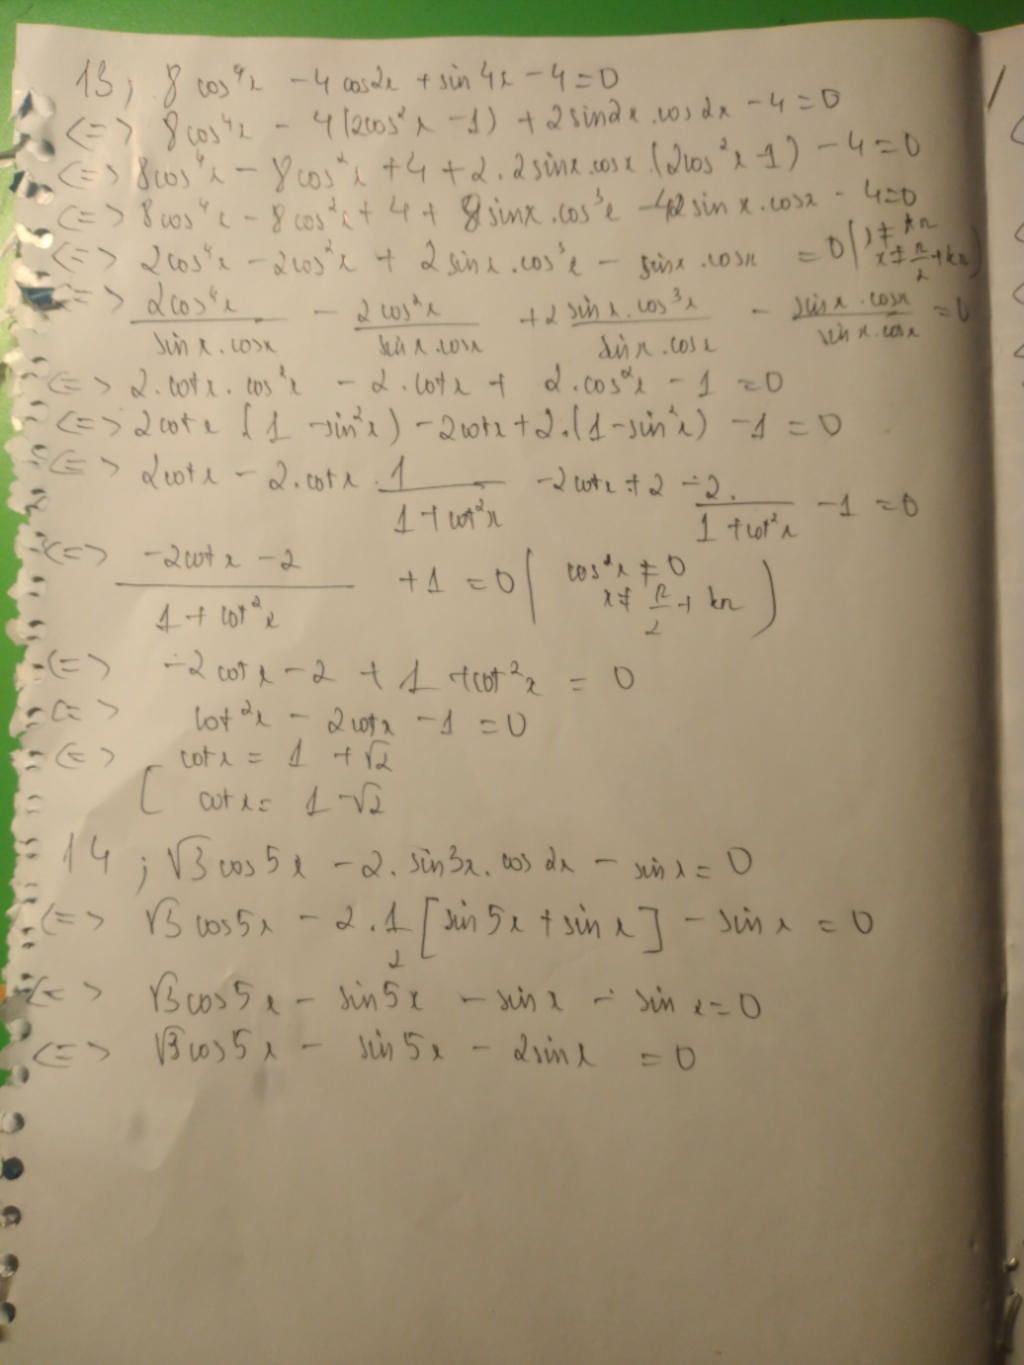 13, 8cos⁴x - 4cos2x + sin4x - 4 = 0
<=> 8cos⁴x - 4(2cos²x - 1) + 2sin2x.cos2x - 4 = 0
<=> 8cos⁴x - 8cos²x + 4 + 2.2sinx.cosx(2cos²x - 1) - 4 = 0
<=> 8cos⁴x - 8cos²x + 4 + 8sinx.cos³x - 4sinx.cosx - 4 = 0
<=> 2cos⁴x - 2cos²x + 2sinx.cos³x - sinx.cosx = 0 (x ≠ kπ x ≠ π/2 + kπ)
<=> 2cos⁴x/sinx.cosx - 2cos²x/sinx.cosx + 2 sinx.cos³x/sinx.cosx - sinx.cosx/sinx.cosx = 0
<=> 2.cotx.cos²x - 2.cotx + 2.cos²x - 1 = 0
<=> 2cotx(1 - sin²x) - 2cotx + 2.(1 - sin²x) - 1 = 0
<=> 2cotx - 2.cotx.1/1 + cot²x - 2cotx + 2 - 2./1 + cot²x - 1 = 0
<=> -2cotx - 2/1 + cot²x + 1 = 0 (cos²x ≠ 0 x ≠ π/2 + kπ)
<=> -2cotx - 2 + 1 + cot²x = 0
<=> cot²x - 2cotx - 1 = 0
<=> [ cotx = 1 + √2
cotx = 1 - √2
14, √3cos5x - 2.sin3x.cos2x - sinx = 0
<=> √3cos5x - 2.1/2[sin5x + sinx] - sinx = 0
<=> √3cos5x - sin5x - sinx - sinx = 0
<=> √3cos5x - sin5x - 2sinx = 0